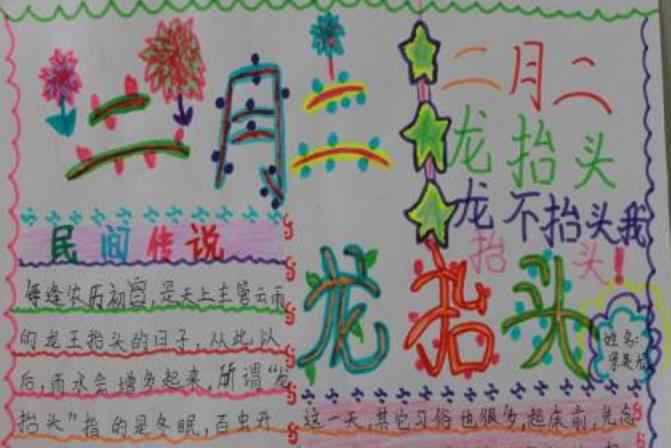 二月二
二月二
龙抬头
龙不抬头我
抬头！
民间传说
龙抬头
每逢农历初,是天上主管云雨
的龙王抬头的日子,从此以
后,雨水会增多起来,所谓“龙
抬头”指的是冬眠,百虫开
姓名:
这一天,其它习俗也很多,起床前,先念